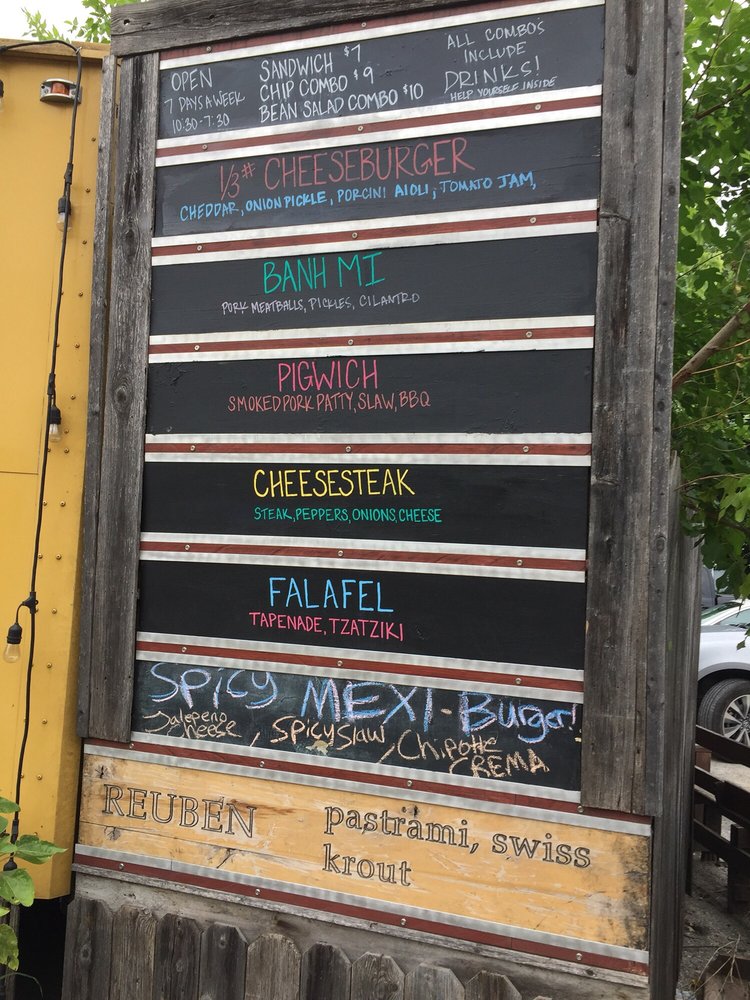 OPEN
7 DAYS A WEEK
10:30-7:30
SANDWICH $7
CHIP COMBO $9
BEAN SALAD COMBO $10
ALL COMBOS
INCLUDE
DRINKS!
HELP YOURSELF INSIDE
1/3# CHEESEBURGER
CHEDDAR, ONION PICKLE, PORCINI AIOLI, TOMATO JAM,
BANH MI
PORK MEATBALLS, PICKLES, CILANTRO
PIGWICH
SMOKED PORK PATTY, SLAW, BBQ
CHEESESTEAK
STEAK, PEPPERS, ONIONS, CHEESE
FALAFEL
TAPENADE, TZATZIKI
SPICY MEXI-Burger!
Jalepeno
cheese, SPICY SLAW, Chipotle
CREMA
REUBEN
pastrami, swiss
krout